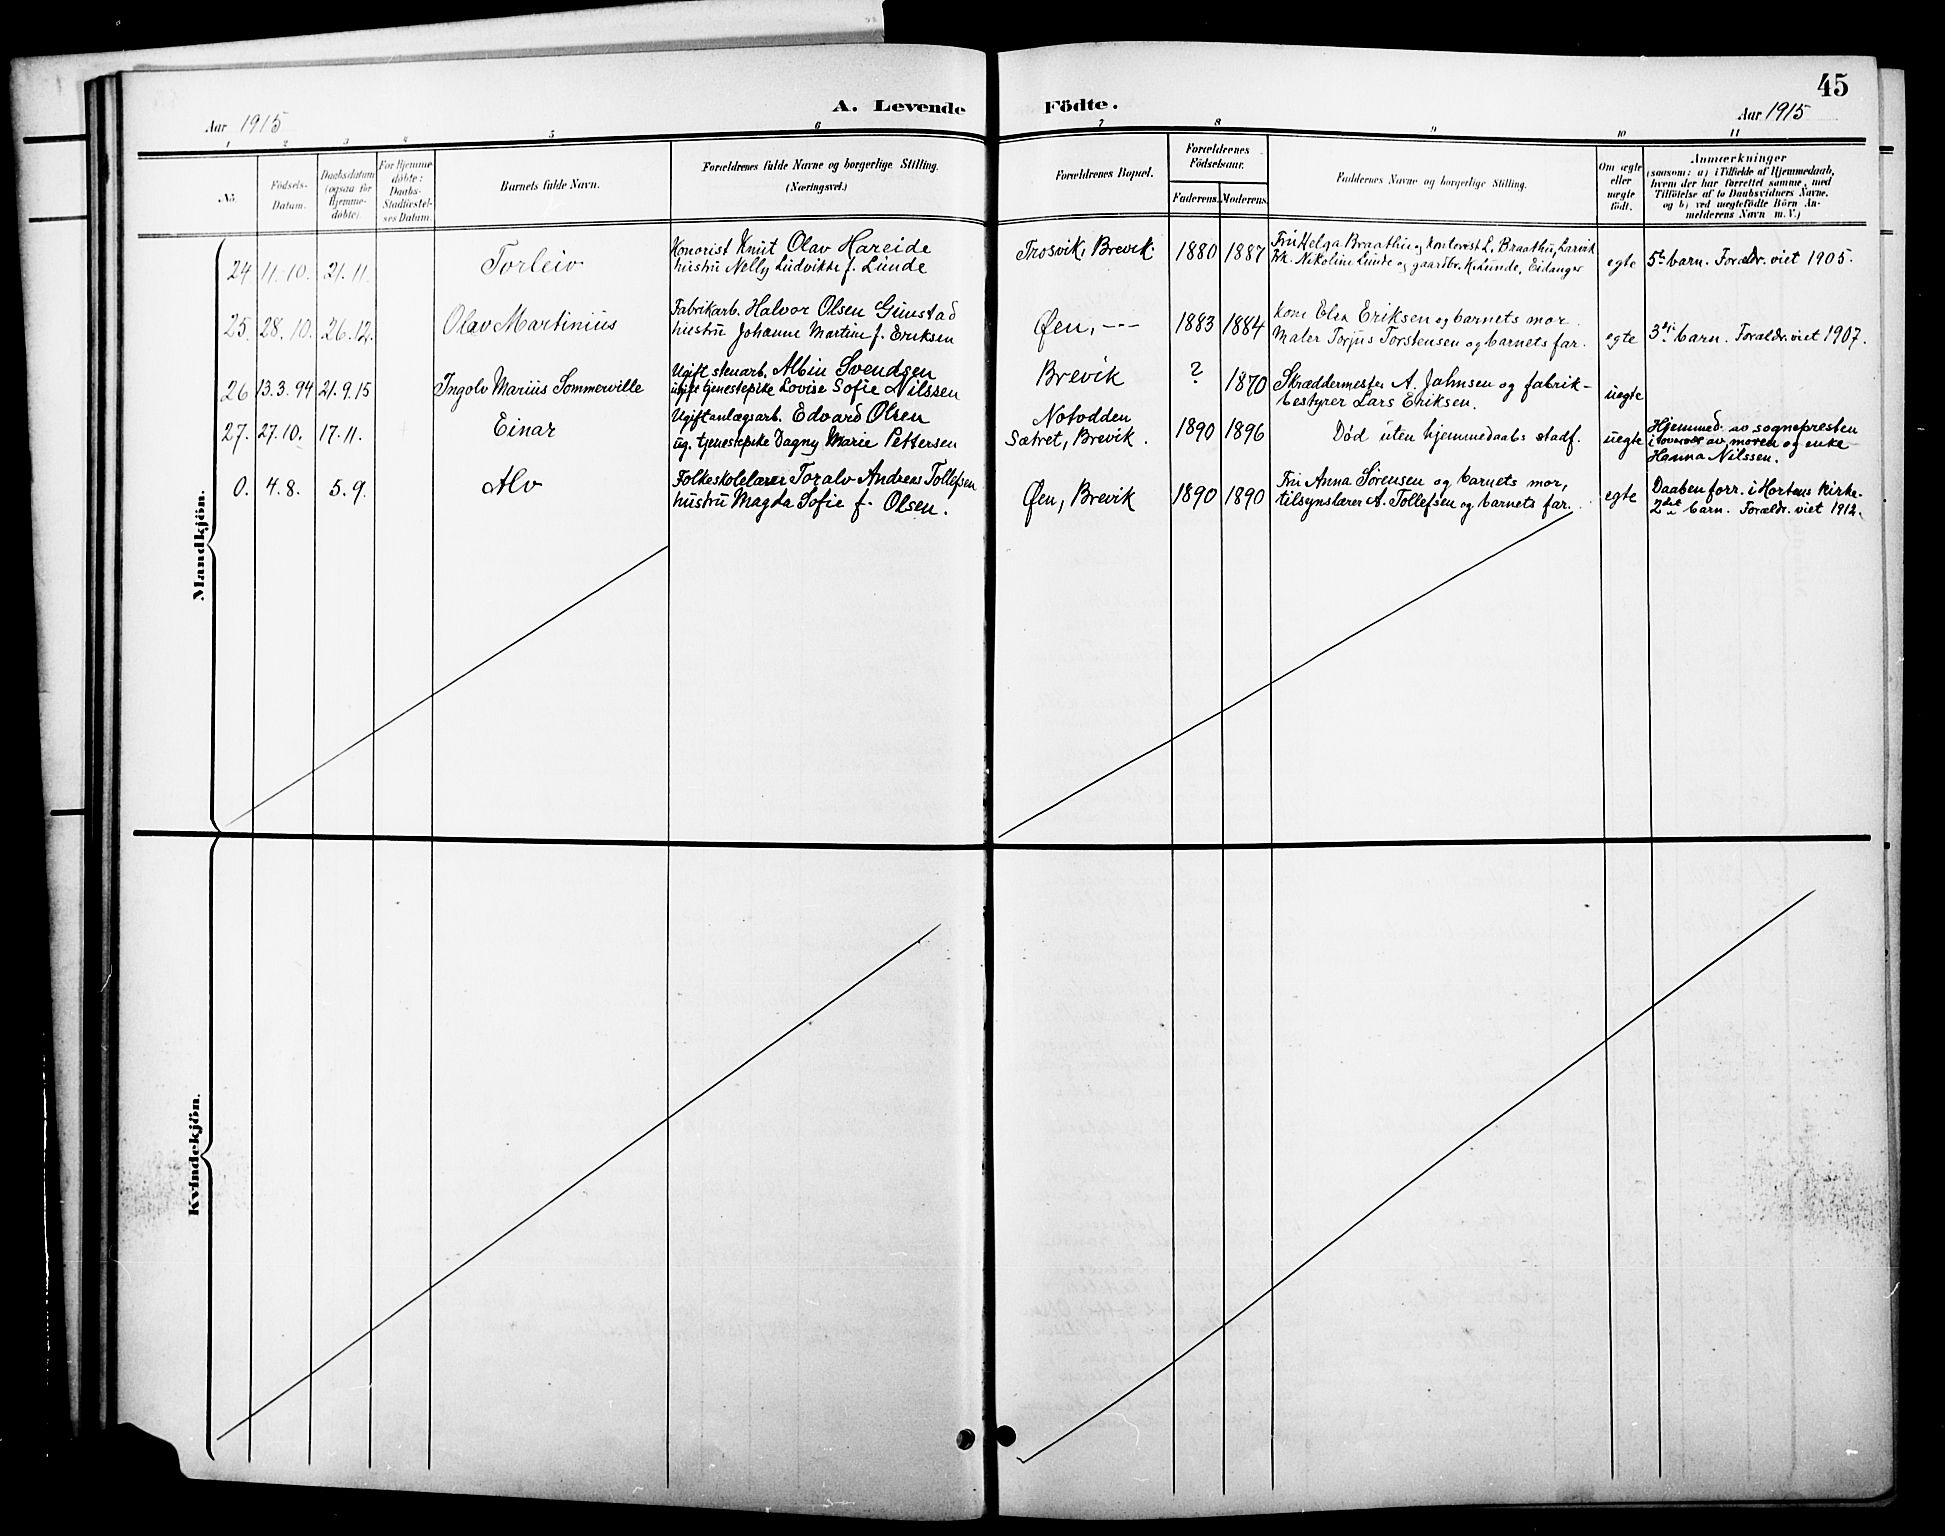 45
A. Levende Födte.
Aar 1915
Aar 1915
1 2 3 4 5 6 7 8 9 10 11
No.
Födsels-
Datum.
Daabsdatum
(ogsaa for
Hjemme-
döbte).
For Hjemme-
döbte:
Daabs-
Stadfæstel-
ses Datum.
Barnets fulde Navn.
Forældrenes fulde Navne og borgerlige Stilling.
(Næringsvei.)
Forældrenes Bopæl.
Forældrenes
Födselsaar.
Faderens. Moderens.
Faddernes Navne og borgerlige Stilling.
Om ægte
eller
uægte
födt.
Anmærkninger
(saasom: a) i Tilfælde af Hjemmedaab,
hvem der har forrettet samme, med
Tilföielse af to Daabsvidners Navne.
og b) ved uægtefödte Börn An-
melderens Navn m. V.)
Mandkjön.
24 11.10. 21.11. Torleiv
Kontorist Knut Olav Hareide
hustru Nelly Ludvikke f. Lunde
Trosvik, Brevik. 1880 1887
Fru Helga Braathu og kontorist L. Braathu, Larvik
Frk. Nikoline Lunde og gaardbr. K. Lunde, Eidanger
egte 5te barn. Forældr. viet 1905.
25. 28.10. 26.12. Olav Martinius
Fabrikarb. Halvor Olsen Gunstad
hustru Johanne Martine f. Eriksen
Øen, -–- 1883 1884
kone Elen Eriksen og barnets mor.
Maler Torjus Torstensen og barnets far.
egte 3die barn. Forældr. viet 1907.
26 13.3.94 21.9.15 Ingolv Marius Sommerville
Ugift stenarb. Albin Svendsen
ugift tjenestepike Lovise Sofie Nilssen
Brevik ? 1870
Skræddermester A. Jahnsen og fabrik-
bestyrer Lars Eriksen.
uegte
27. 27.10. 17.11. Einar
Ugift anlægsarb. Edvard Olsen
ug. tjenestepike Dagny Marie Pettersen
Notodden
Sætret, Brevik. 1890 1896
Død uten hjemmedaabs stadf.
uegte
Hjemmed. av sognepresten
i overvær av moren og enke
Hanna Nilssen.
0. 4.8. 5.9. Alv
Folkeskolelærer Toralv Andreas Tollefsen
hustru Magda Sofie f. Olsen.
Øen, Brevik 1890 1890
Fru Anna Sörensen og barnets mor,
tilsynslærer A. Tollefsen og barnets far.
egte
Daaben forr. i Hortens kirke.
2det barn. Forældr. viet 1912.
Kvindekjön.